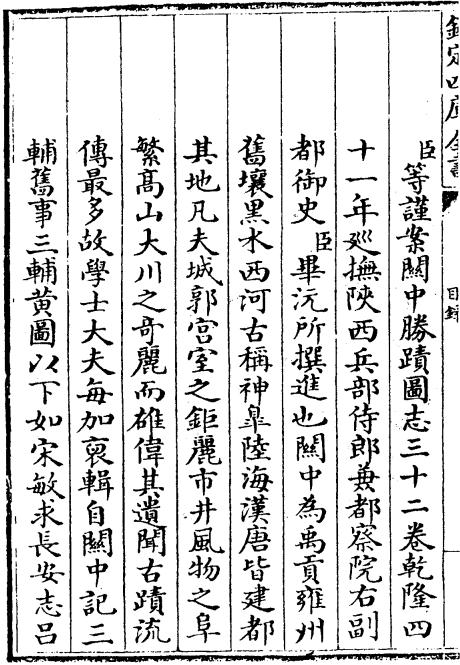 欽定四庫全書
目錄
臣等謹案關中勝蹟圖志三十二卷乾隆四
十一年廵撫陜西兵部侍郎兼都察院右副
都御史臣畢沅所撰進也關中為禹貢雍州
舊壤黑水西河古稱神臯陸海漢唐皆建都
其地凡夫城郭宫室之鉅麗市井風物之阜
繁髙山大川之竒麗而雄偉其遺聞古蹟流
傳最多故學士大夫每加裒輯自關中記三
輔舊事三輔黄圖以下如宋敏求長安志吕